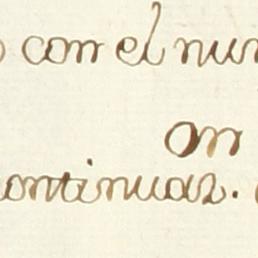 con el nu
on
continuar.